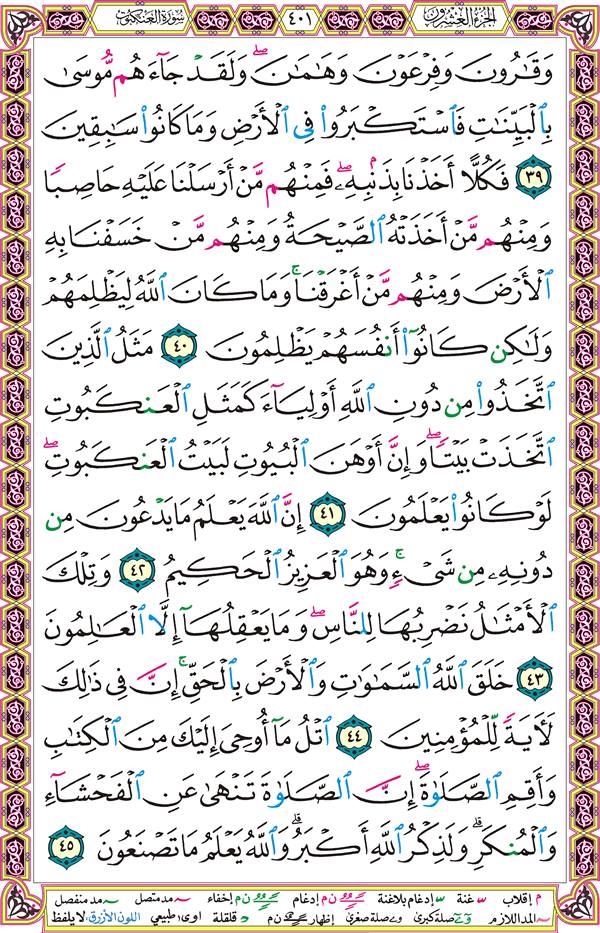 الجزء العشرون ٤٠١ سورة العنكبوت
وَقَٰرُونَ وَفِرْعَوْنَ وَهَٰمَٰنَ ۖ وَلَقَدْ جَآءَهُم مُّوسَىٰ
بِٱلْبَيِّنَٰتِ فَٱسْتَكْبَرُوا۟ فِى ٱلْأَرْضِ وَمَا كَانُوا۟ سَٰبِقِينَ
٣٩ فَكُلًّا أَخَذْنَا بِذَنۢبِهِۦ ۖ فَمِنْهُم مَّنْ أَرْسَلْنَا عَلَيْهِ حَاصِبًا
وَمِنْهُم مَّنْ أَخَذَتْهُ ٱلصَّيْحَةُ وَمِنْهُم مَّنْ خَسَفْنَا بِهِ
ٱلْأَرْضَ وَمِنْهُم مَّنْ أَغْرَقْنَا ۚ وَمَا كَانَ ٱللَّهُ لِيَظْلِمَهُمْ
وَلَٰكِن كَانُوٓا۟ أَنفُسَهُمْ يَظْلِمُونَ ٤٠ مَثَلُ ٱلَّذِينَ
ٱتَّخَذُوا۟ مِن دُونِ ٱللَّهِ أَوْلِيَآءَ كَمَثَلِ ٱلْعَنكَبُوتِ
ٱتَّخَذَتْ بَيْتًا ۖ وَإِنَّ أَوْهَنَ ٱلْبُيُوتِ لَبَيْتُ ٱلْعَنكَبُوتِ ۖ
لَوْ كَانُوا۟ يَعْلَمُونَ ٤١ إِنَّ ٱللَّهَ يَعْلَمُ مَا يَدْعُونَ مِن
دُونِهِۦ مِن شَىْءٍ ۚ وَهُوَ ٱلْعَزِيزُ ٱلْحَكِيمُ ٤٢ وَتِلْكَ
ٱلْأَمْثَٰلُ نَضْرِبُهَا لِلنَّاسِ ۖ وَمَا يَعْقِلُهَآ إِلَّا ٱلْعَٰلِمُونَ
٤٣ خَلَقَ ٱللَّهُ ٱلسَّمَٰوَٰتِ وَٱلْأَرْضَ بِٱلْحَقِّ ۚ إِنَّ فِى ذَٰلِكَ
لَءَايَةً لِّلْمُؤْمِنِينَ ٤٤ ٱتْلُ مَآ أُوحِىَ إِلَيْكَ مِنَ ٱلْكِتَٰبِ
وَأَقِمِ ٱلصَّلَوٰةَ ۖ إِنَّ ٱلصَّلَوٰةَ تَنْهَىٰ عَنِ ٱلْفَحْشَآءِ
وَٱلْمُنكَرِ ۗ وَلَذِكْرُ ٱللَّهِ أَكْبَرُ ۗ وَٱللَّهُ يَعْلَمُ مَا تَصْنَعُونَ ٤٥
م إقلاب غنة إدغام بلاغنة ن م إدغام ن م إخفاء مد متصل مد منفصل
المد اللازم صلة كبرى صلة صغرى إظهار ن م قلقلة اوى: طبيعي اللون الأزرق: لا يلفظ